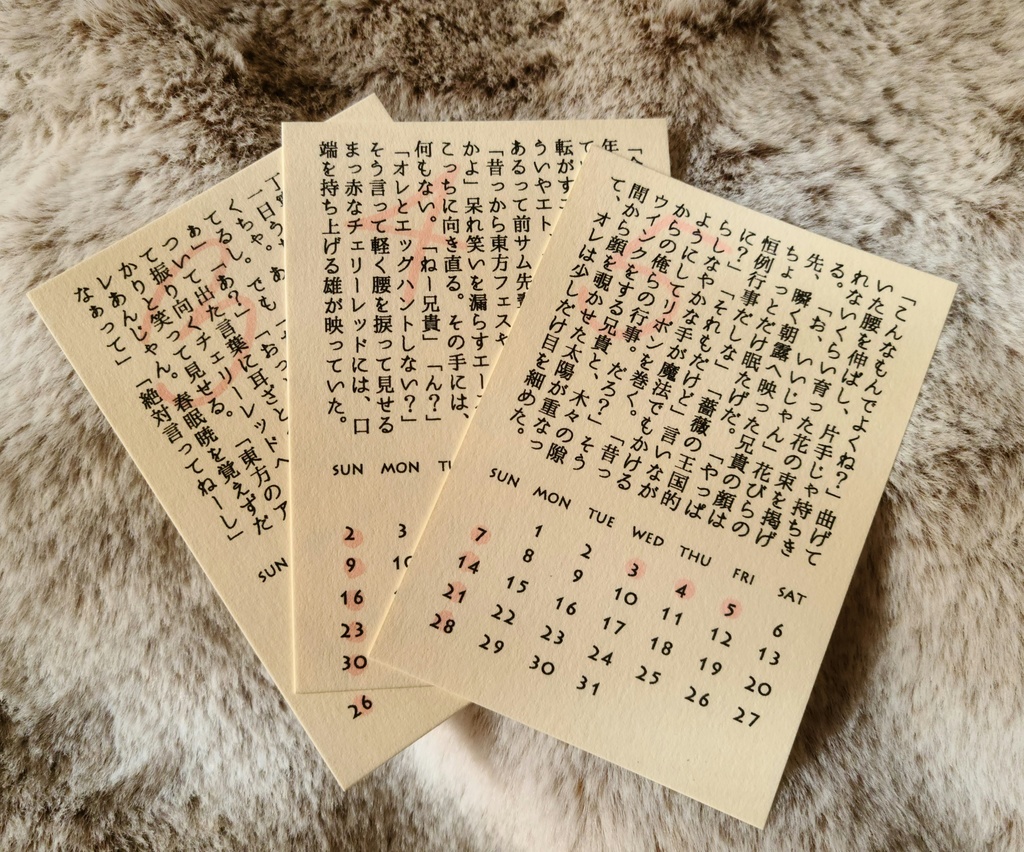 「こんなもんでよくね？」曲げて
いた腰を伸ばし、片手じゃ持ちき
れないくらい育った花の束を掲げ
る。「お、いいじゃん」花びらの
先、瞬く朝露へ映った兄貴の顔は
ちょっとだけ眠たげだ。「やっぱ
恒例行事だしな」「薔薇の王国的
に？」「それもだけど」言いなが
らしなやかな手が魔法でもかける
ようにしてリボンを巻く。「昔っ
からの俺らの行事。だろ？」そう
ウィンクをする兄貴と、木々の隙
間から顔を覗かせた太陽が重なっ
て、オレは少しだけ目を細めた。
5
SUN MON TUE WED THU FRI SAT
1 2 3 4 5 6
7 8 9 10 11 12 13
14 15 16 17 18 19 20
21 22 23 24 25 26 27
28 29 30 31
年
転がすこ
ういやエト
あるって前サム先
「昔っから東方フェスや
かよ」呆れ笑いを漏らすエー
こっちに向き直る。その手には、
何もない。「ねー兄貴」「ん？」
「オレとエッグハントしない？」
そう言って軽く腰を捩って見せる
まっ赤なチェリーレッドには、口
端を持ち上げる雄が映っていた。
4
SUN MON
2 3
9
16
23
30
言葉に耳ざと
向くチェリーレッドへ
笑って見せる。「東方のア
春眠暁を覚えずだ
なぁって」「絶対言ってねーし」
3
SUN
26